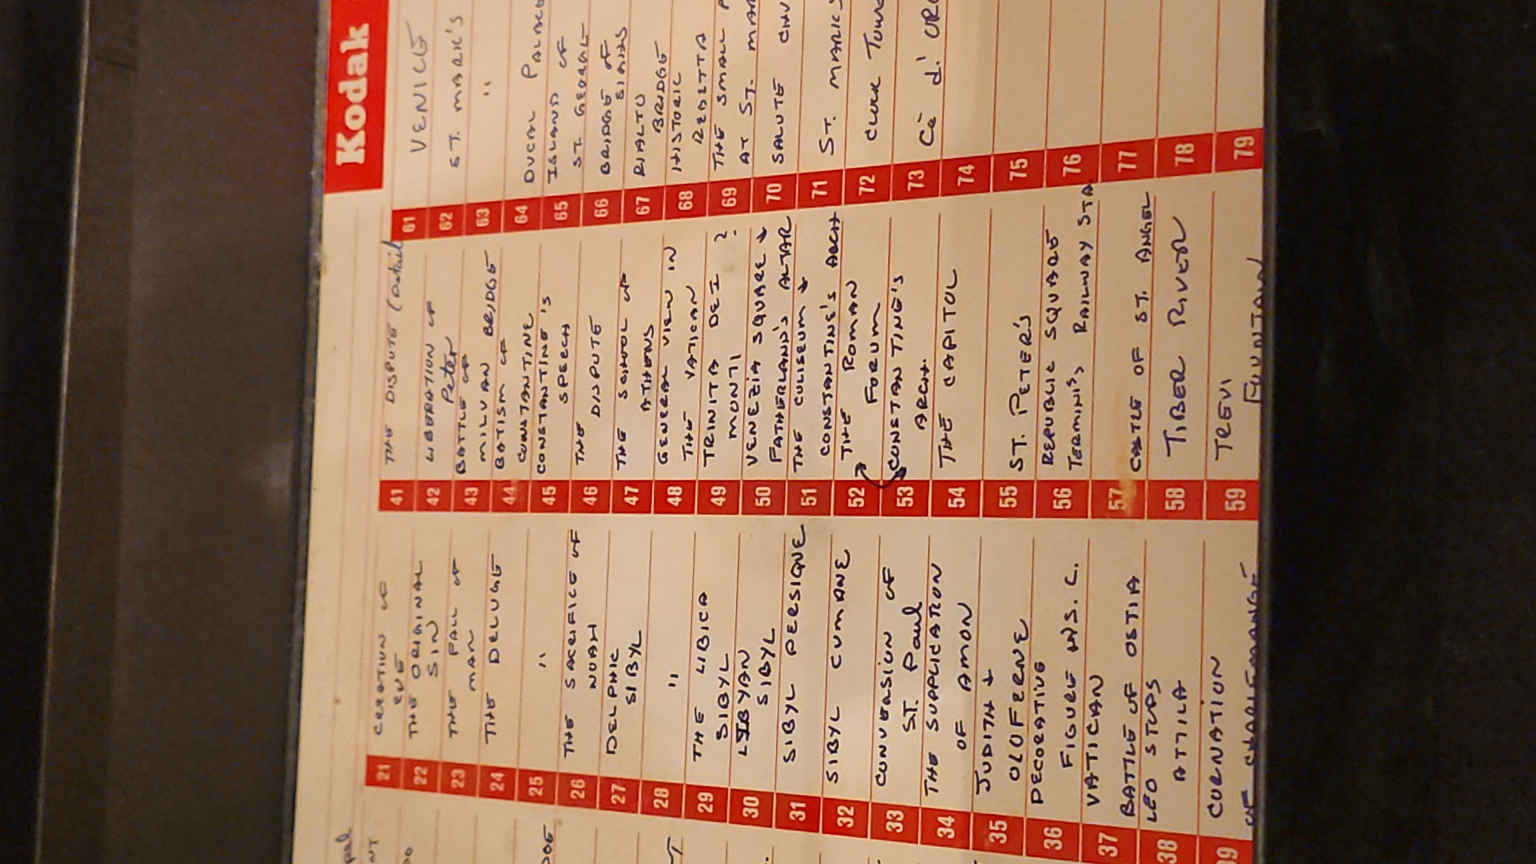 Kodak
21 CREATION OF
EVE
22 THE ORIGINAL
SIN
23 THE FALL OF
MAN
24 THE DELUGE
25 "
26 THE SACRIFICE OF
NOAH
27 DELPHIC
SIBYL
28 "
29 THE LIBICA
SIBYL
30 LIBYAN
SIBYL
31 SIBYL PERSIQUE
32 SIBYL CUMANE
33 CONVERSION OF
ST. Paul
34 THE SUPPLICATION
OF AMON
35 JUDITH &
OLOFERNE
36 DECORATIVE
FIGURE IN S. C.
VATICAN
37 BATTLE OF OSTIA
38 LEO STOPS
ATTILA
39 CORNATION
OF CHARLEMANGE
41 THE DISPUTE (Detail
42 LIBERATION OF
Peter
43 BATTLE OF
MILVAN BRIDGE
44 BATISM OF
CONSTANTINE
45 CONSTANTINE'S
SPEECH
46 THE
DISPUTE
47 THE SCHOOL OF
ATHENS
48 GENERAL VIEW IN
THE VATICAN
49 TRINITA DEI ?
MONTI
50 VENEZIA SQUARE &
FATHERLAND'S ALTAR
51 THE COLISEUM &
CONSTANTINE'S ARCH
52 THE ROMAN
FORUM
53 CONSTANTINE'S
ARCH
54 THE CAPITOL
55 ST. PETER'S
56 REPUBLIC SQUARE
TERMINI'S RAILWAY STA
57 CASTLE OF ST. ANGEL
58 TIBER RIVER
59 TREVI
FOUNTAIN
61 VENICE
62 ST. MARK'S
63 "
64 DUCAL PALACE
65 ISLAND OF
ST. GEORGE
66 BRIDGE OF
SIGHS
67 RIALTO
BRIDGE
68 HISTORIC
REGETTA
69 THE SMALL
AT ST. MAR
70 SALUTE CHU
71 ST. MARK'S
72 CLOCK TOWE
73 Cà d' ORO
74
75
76
77
78
79